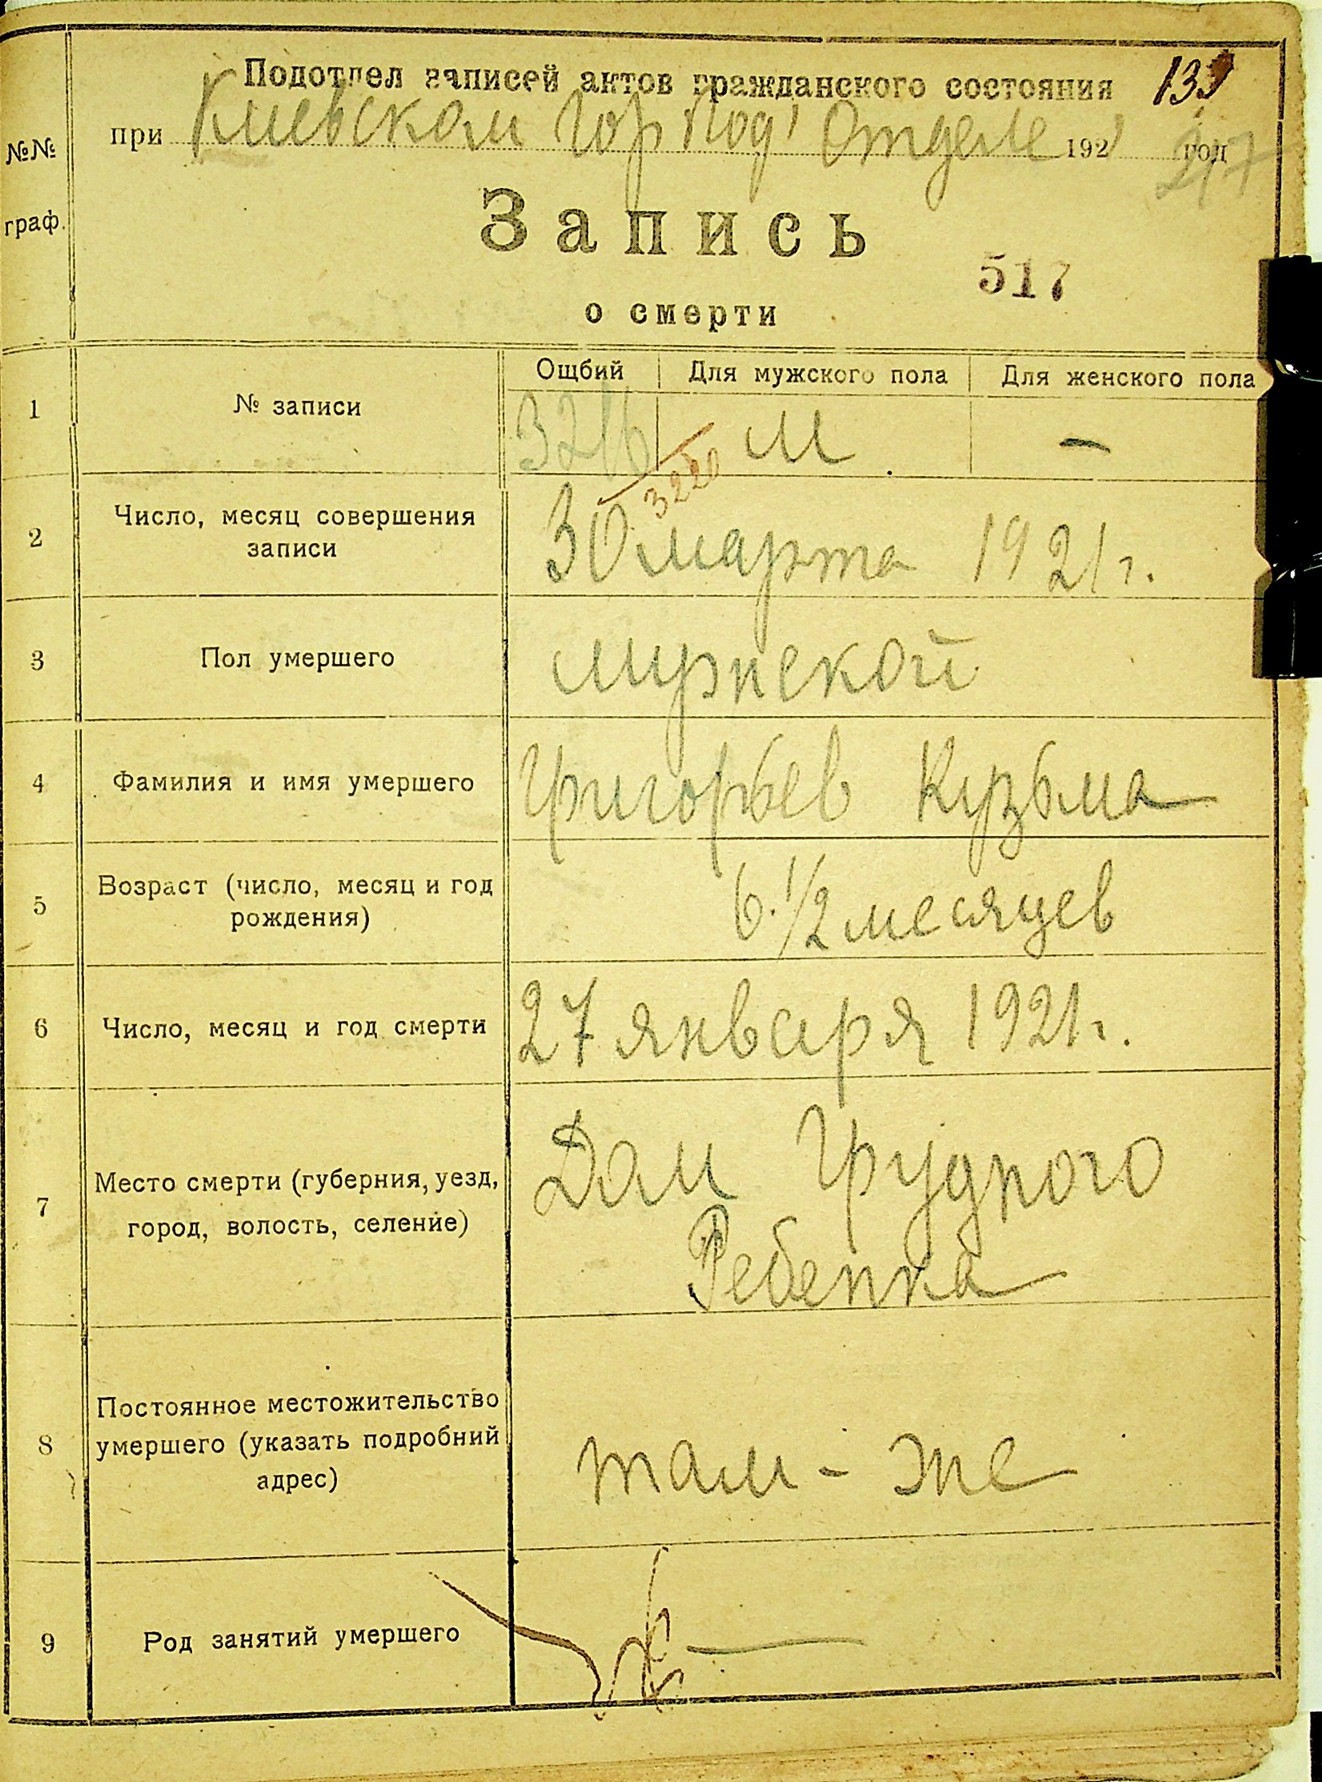 Подотдел записей актов гражданского состояния
при Киевском Гор Под' Отделе 1921 год
217
№№ граф.
Запись
517
о смерти
Ощбий Для мужского пола Для женского пола
1 № записи 3216 М —
3220
2 Число, месяц совершения записи 30 марта 1921 г.
3 Пол умершего мужской
4 Фамилия и имя умершего Григорьев Кузьма
5 Возраст (число, месяц и год рождения) 6.1/2 месяцев
6 Число, месяц и год смерти 27 января 1921 г.
7 Место смерти (губерния, уезд, город, волость, селение) Дом Грудного
Ребенка
8 Постоянное местожительство умершего (указать подробний адрес) там - же
9 Род занятий умершего —